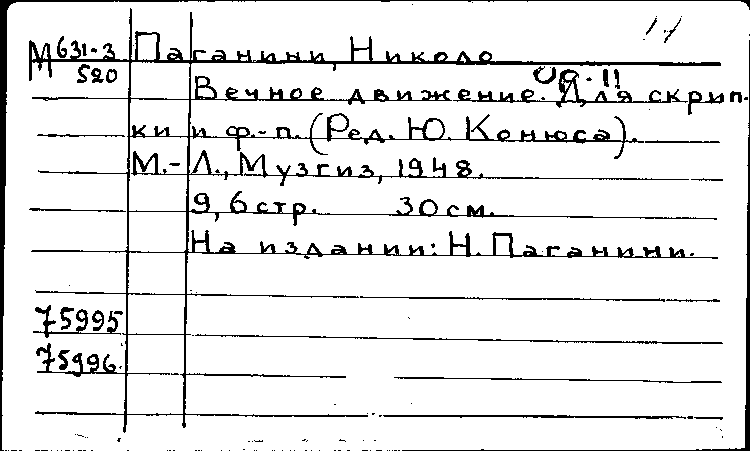 М 631-3 Паганини, Николо
520
ор. 11
Вечное движение. Для скрип-
ки и ф.-п. (Ред. Ю. Конюса).
М.-Л., Музгиз, 1948.
9, 6 стр. 30 см.
На издании: Н. Паганини.
75995
75996.